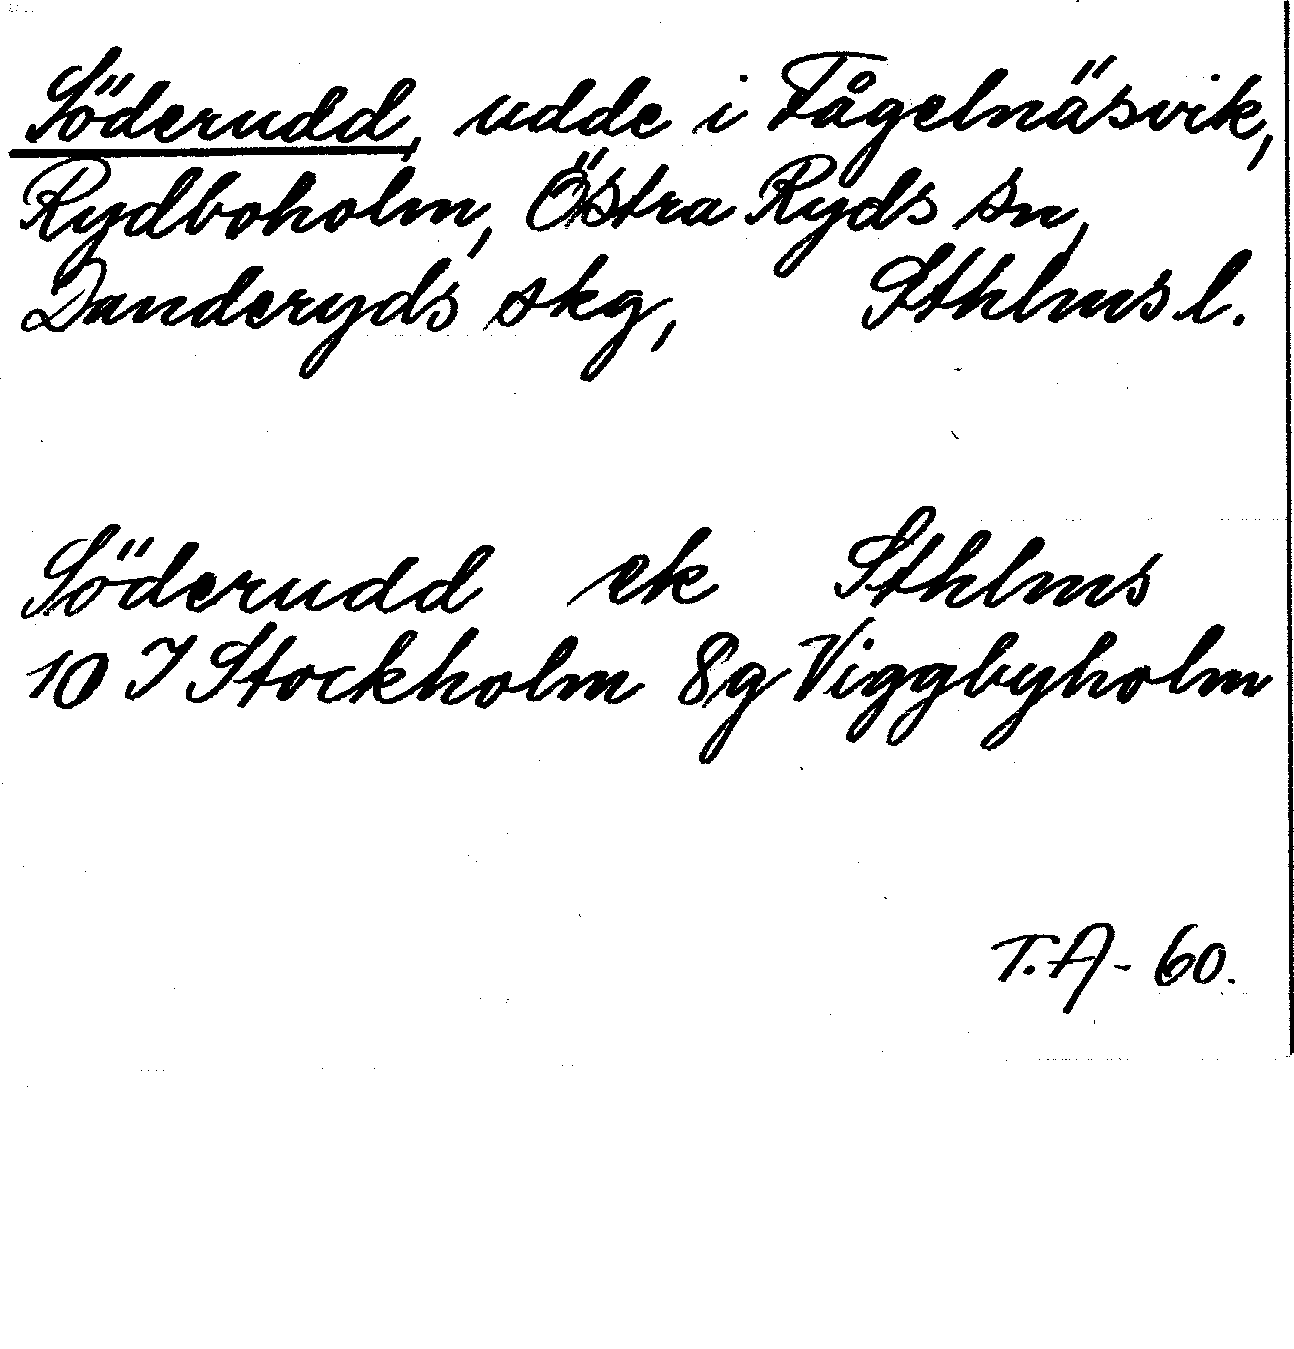 Söderudd, udde i Fågelnäsvik,
Rydboholm, Östra Ryds sn,
Danderyds skg, Sthlms l.
Söderudd ek Sthlms
10 I Stockholm 8g Viggbyholm
T.A - 60.